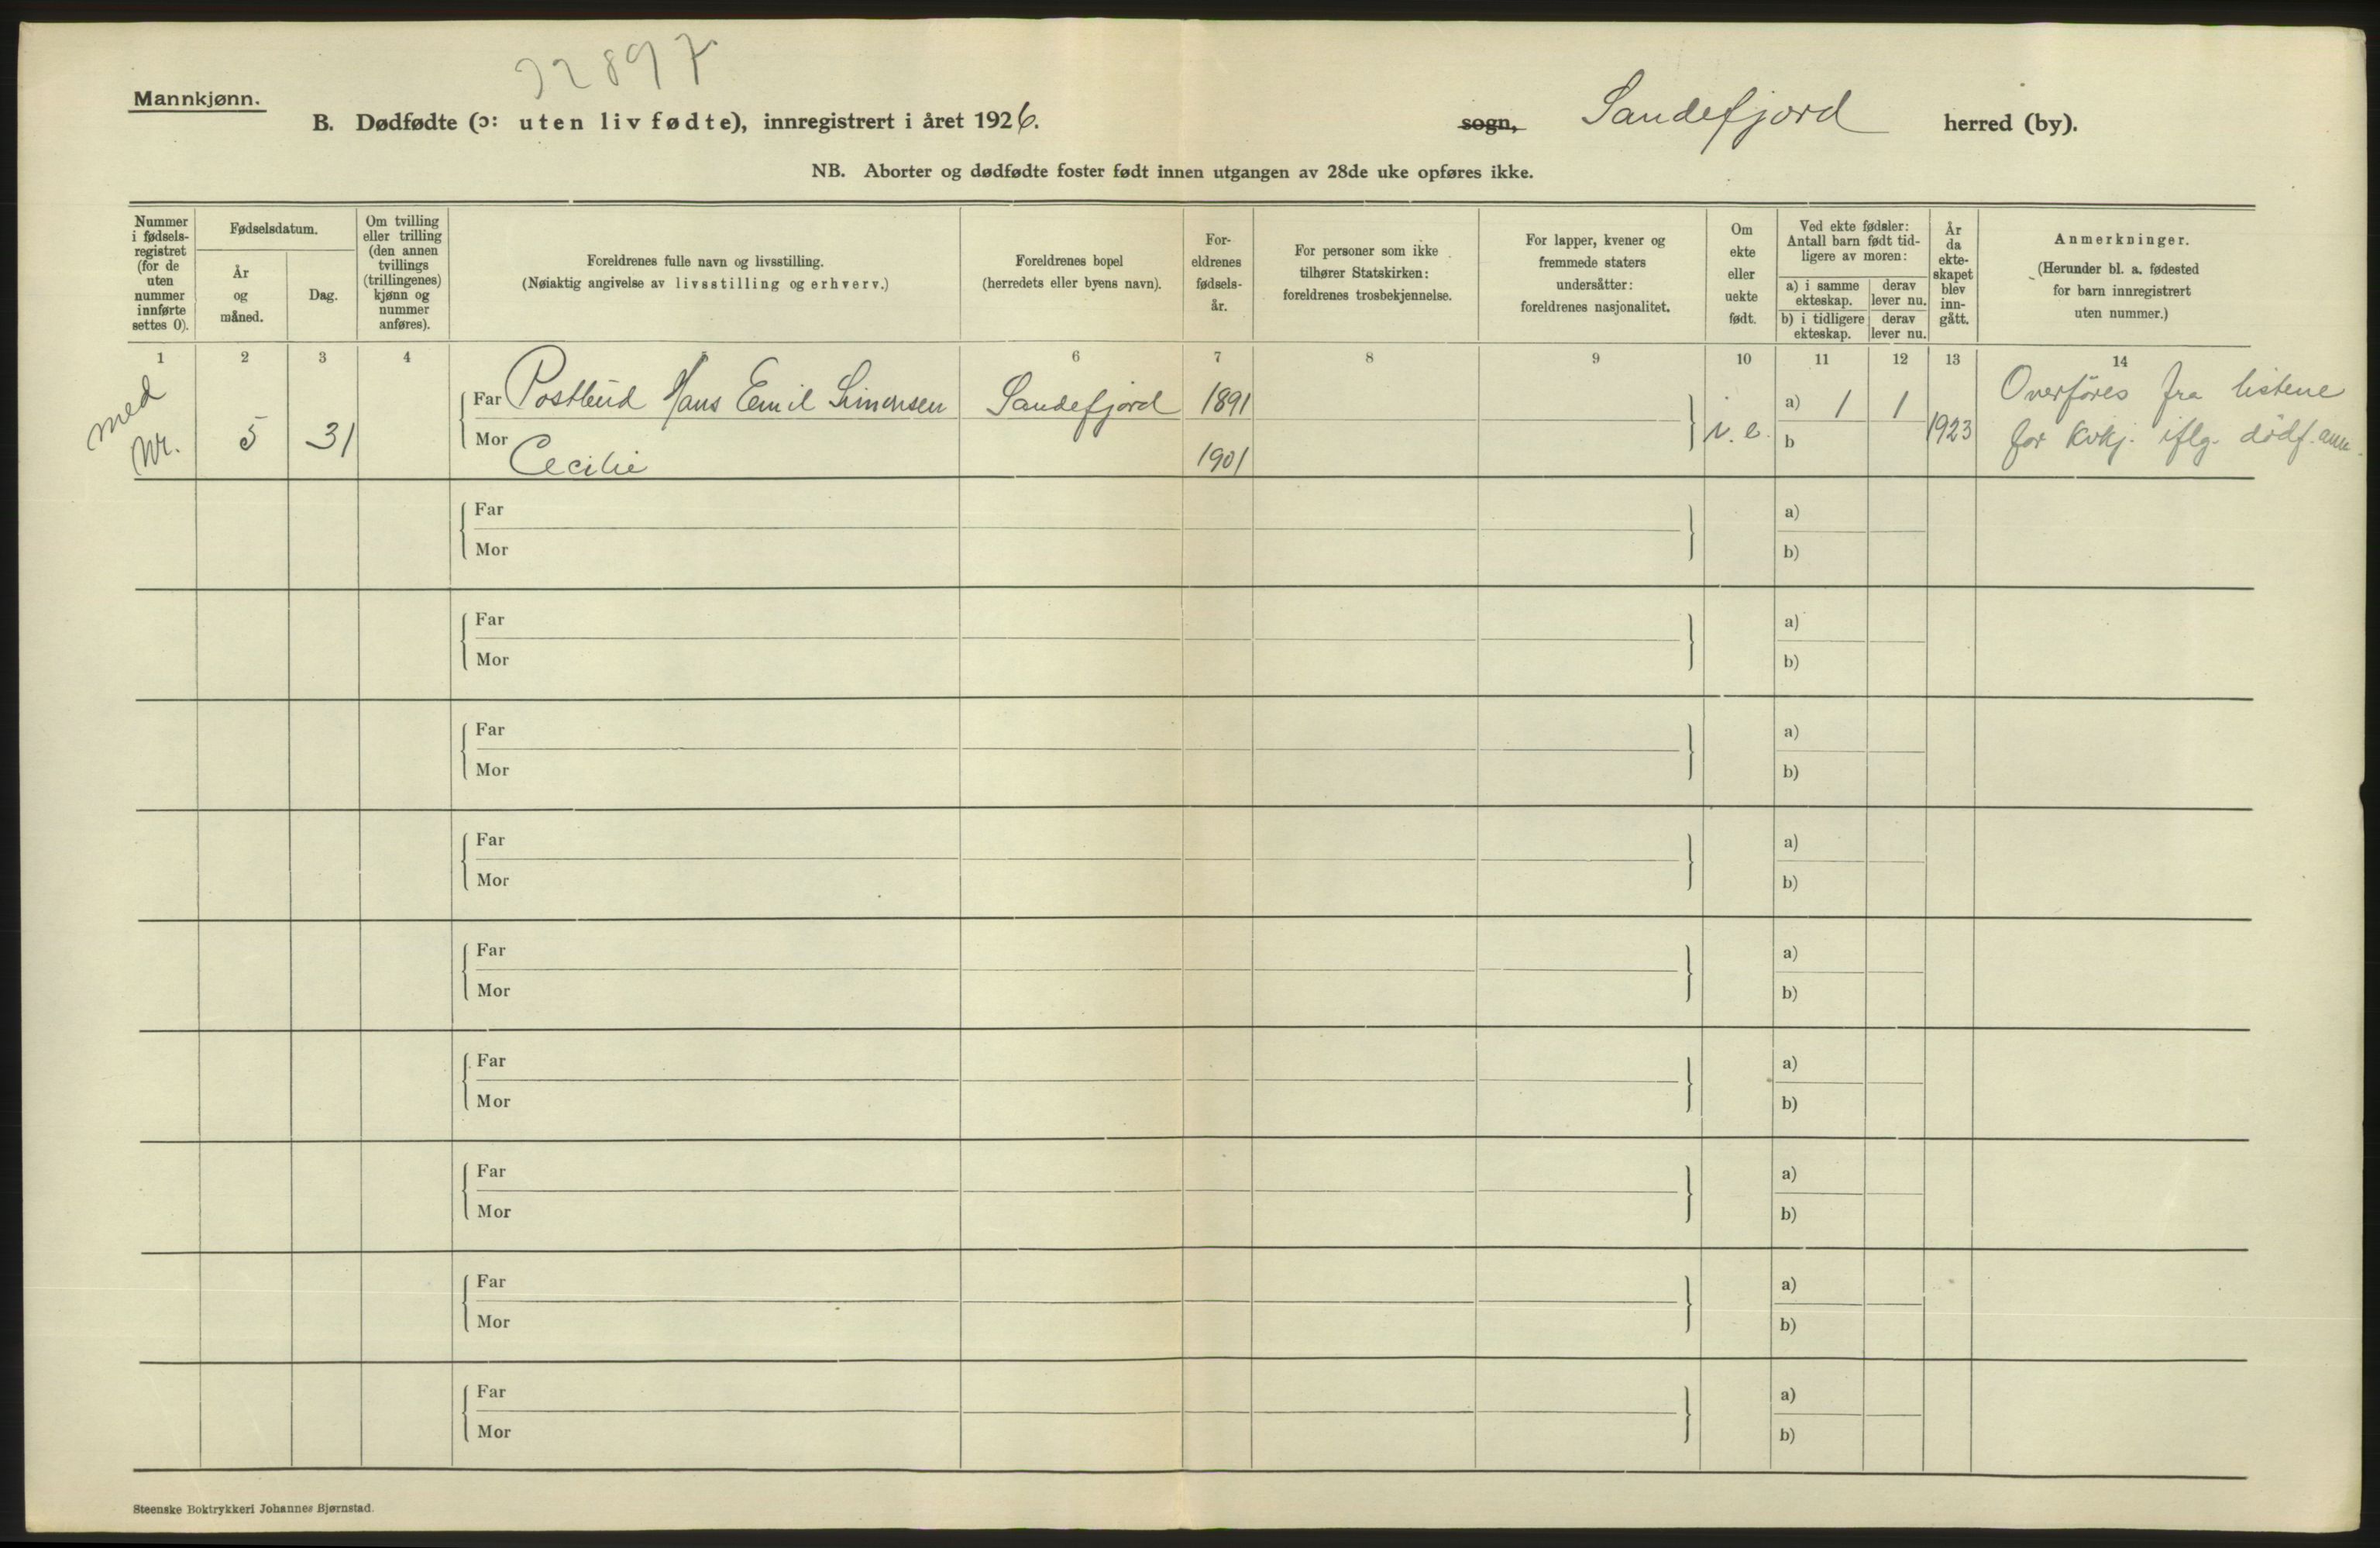 32897
Mannkjønn.
B. Dødfødte (ɔ: uten liv fødte), innregistrert i året 1926. sogn, Sandefjord herred (by).
NB. Aborter og dødfødte foster født innen utgangen av 28de uke opføres ikke.
Nummer i fødsels-registret (for de uten nummer innførte settes 0).
Fødselsdatum.
År og måned.
Dag.
Om tvilling eller trilling (den annen tvillings (trillingenes) kjønn og nummer anføres).
Foreldrenes fulle navn og livsstilling.
(Nøiaktig angivelse av livsstilling og erhverv.)
Foreldrenes bopel
(herredets eller byens navn).
For-eldrenes fødsels-år.
For personer som ikke tilhører Statskirken: foreldrenes trosbekjennelse.
For lapper, kvener og fremmede staters undersåtter: foreldrenes nasjonalitet.
Om ekte eller uekte født.
Ved ekte fødsler: Antall barn født tid-ligere av moren:
a) i samme ekteskap.
derav lever nu.
b) i tidligere ekteskap.
derav lever nu.
År da ekte-skapet blev inn-gått.
Anmerkninger.
(Herunder bl. a. fødested for barn innregistrert uten nummer.)
1 2 3 4 5 6 7 8 9 10 11 12 13 14
med Nr. 5 31
Far Postbud Hans Emil Simensen Sandefjord 1891 a) 1 1 Overføres fra listene
Mor Cecilie 1901 e. b 1923 for kvkj. iflg. dødf. anm.
Far a)
Mor b)
Far a)
Mor b)
Far a)
Mor b)
Far a)
Mor b)
Far a)
Mor b)
Far a)
Mor b)
Far a)
Mor b)
Far a)
Mor b)
Far a)
Mor b)
Steenske Boktrykkeri Johannes Bjørnstad.